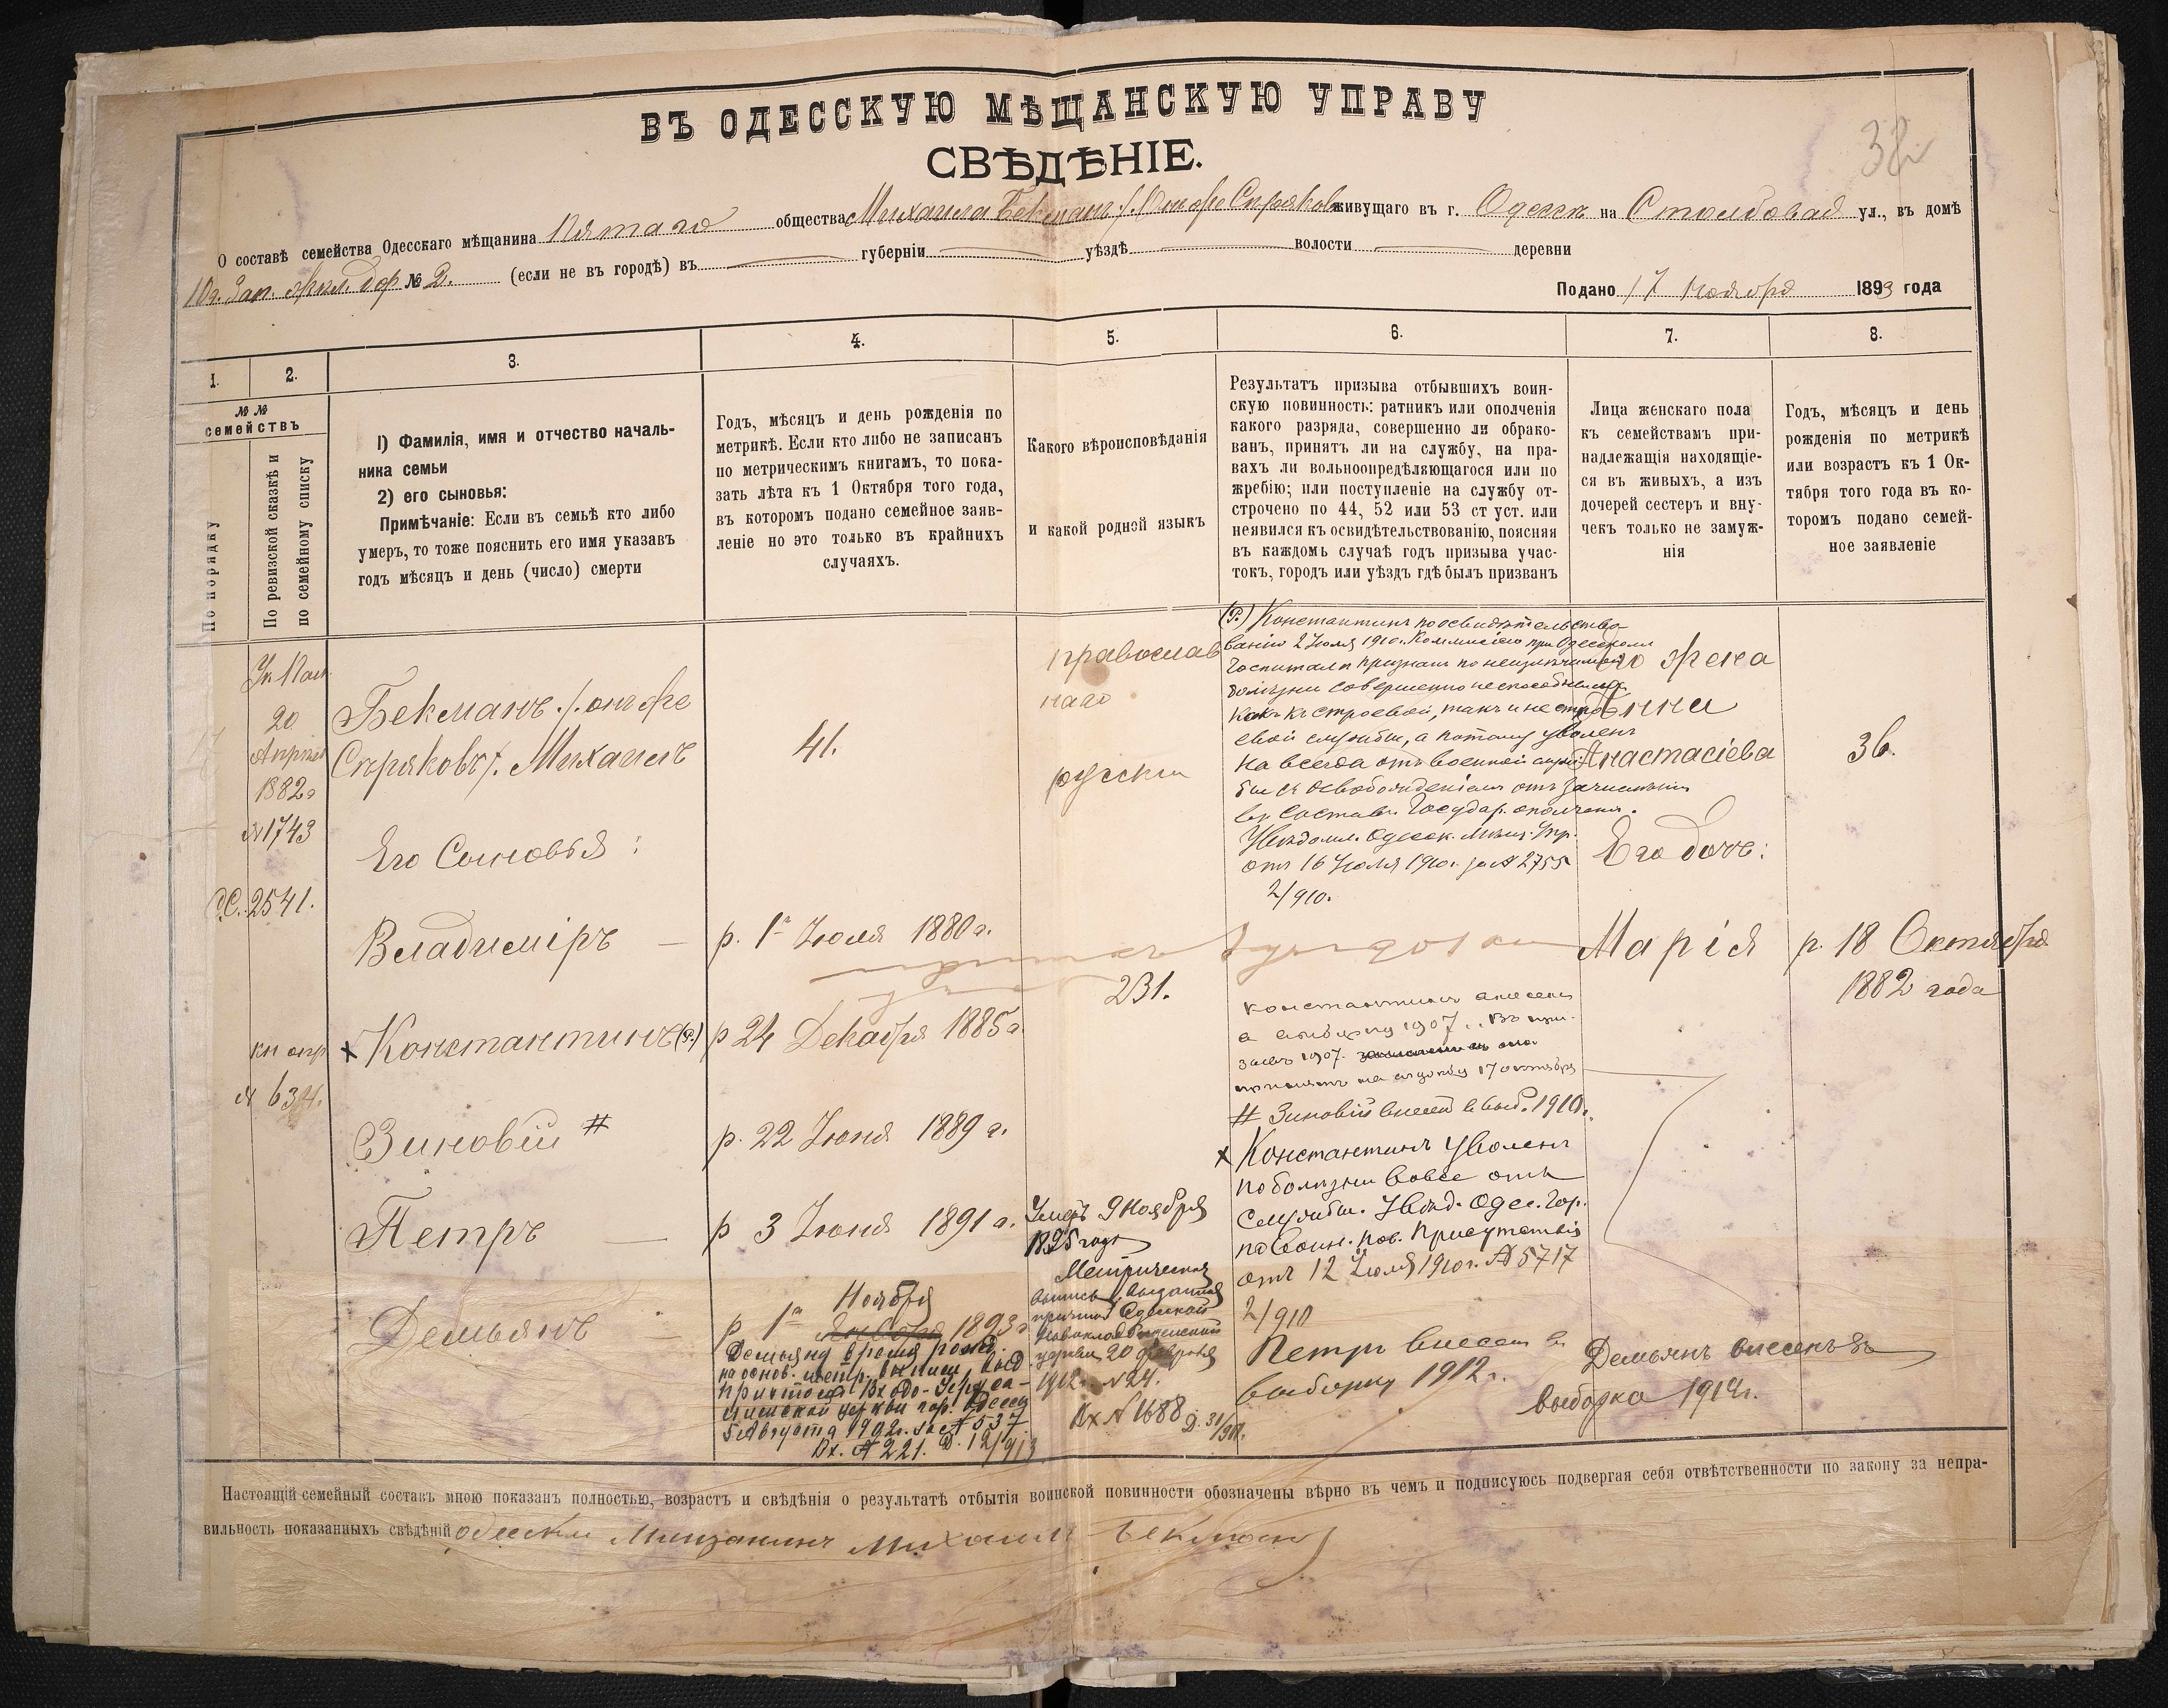 ВЪ ОДЕССКУЮ МѢЩАНСКУЮ УПРАВУ
СВѢДѢНІЕ.
32
О составѣ семейства Одесскаго мѣщанина Пятаго общества Михаила Бекманъ /. онъ же Скряковъ живущаго въ г. Одессѣ на Столбовая ул., въ домѣ
Юг. Зап. жел. дор № 2. (если не въ городѣ) въ губерніи уѣздѣ волости деревни
Подано 17 Ноября 1893 года
1.
2.
3.
4.
5.
6.
7.
8.
№ №
семействъ
По порядку
По ревизской сказкѣ и
по семейному списку
1) Фамилія, имя и отчество началь-
ника семьи
2) его сыновья:
Примѣчаніе: Если въ семьѣ кто либо
умеръ, то тоже пояснить его имя указавъ
годъ мѣсяцъ и день (число) смерти
Годъ, мѣсяцъ и день рожденія по
метрикѣ. Если кто либо не записанъ
по метрическимъ книгамъ, то пока-
зать лѣта къ 1 Октября того года,
въ которомъ подано семейное заяв-
леніе но это только въ крайнихъ
случаяхъ.
Какого вѣроисповѣданія
и какой родной языкъ
Результатъ призыва отбывшихъ воин-
скую повинность: ратникъ или ополченія
какого разряда, совершенно ли обрако-
ванъ, принятъ ли на службу, на пра-
вахъ ли вольноопредѣляющагося или по
жребію; или поступленіе на службу от-
строчено по 44, 52 или 53 ст уст. или
неявился къ освидѣтельствованію, поясняя
въ каждомъ случаѣ годъ призыва учас-
токъ, городъ или уѣздъ гдѣ былъ призванъ
Лица женскаго пола
къ семействамъ при-
надлежащія находящіе-
ся въ живыхъ, а изъ
дочерей сестеръ и вну-
чекъ только не замуж-
нія
Годъ, мѣсяцъ и день
рожденія по метрикѣ
или возрастъ къ 1 Ок-
тября того года въ ко-
торомъ подано семей-
ное заявленіе
20
Апрѣля
1882 г
№ 1743
2541.
№ 634.
Бекманъ /. онъ же
Скряковъ /. Михаилъ
41.
православ
наго
русскій
Его Сыновья:
Владиміръ
р. 1го Іюля 1880 г.
231.
х Константинъ (Р.)
р 24 Декабря 1885 г.
Зиновій #
р. 22 Іюня 1889 г.
Петръ
р 3 Іюня 1891 г.
Демьянъ
Ноября
р 1го Января 1893 г
Демьяну время рожд.
на основ. метр. выписи, выд
причтомъ Входо-Іеруса-
лимской церкви гор. Одессы
5 Августа 1902 г. за № 537
Вх. № 221. Д. 12/913
Умеръ 9 Ноября
1895 года
Метрическая
выпись выданная
причтомъ Одесской
Новокладбищенской
церкви 20 февраля
1912 г. № 24.
Вх № 1688 Д. 31/911.
(Р.) Константинъ по освидѣтельство
ванію 2 Іюля 1910 г. Коммисіею при Одесскомъ
Госпиталѣ признанъ по неизлѣчимой
болѣзни совершенно неспособнымъ
какъ къ строевой, такъ и не стро
евой службѣ, а потому уволенъ
на всегда отъ военной служ
бы съ освобожденіемъ отъ зачисленія
въ составъ Государ. ополченія.
Увѣдомл. Одесск. Мѣщ. Упр.
отъ 16 Іюля 1910 г. за № 2755
2/910.
Константинъ внесенъ
въ выборку 1907 г. Въ при-
зывъ 1907
принятъ на службу 17 октября
# Зиновій внесен в выб. 1910 г.
х Константинъ уволенъ
по болѣзни вовсе отъ
службы. Увѣд. Одес. Гор.
по воин. пов. Присутствія
отъ 12 Іюля 1910 г. № 5717
2/910
Петръ внесен в
выборку 1912 г.
Его жена
Анна
Анастасіева
36.
Его дочь:
Марія
р. 18 Октября
1882 года
Демьянъ внесенъ въ
выборка 1914 г.
Настоящій семейный составъ мною показанъ полностью, возрастъ и свѣдѣнія о результатѣ отбытія воинской повинности обозначены вѣрно въ чемъ и подписуюсь подвергая себя отвѣтственности по закону за непра-
вильность показанныхъ свѣдѣній одесскій Мещанинъ Михаилъ Бекманъ